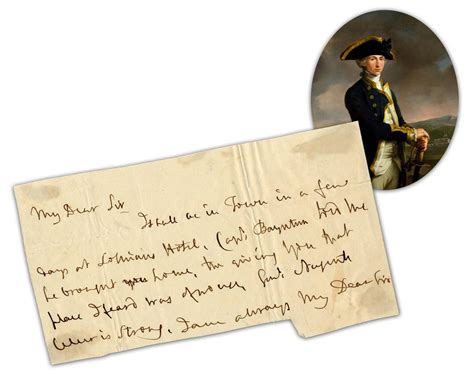 My Dear Sir
I shall be in Town in a few
days at Lothians Hotel, Capt. Bayntun told me
he brought you home, the giving you that
place I heard was
is Strong, I am always My Dear Sir